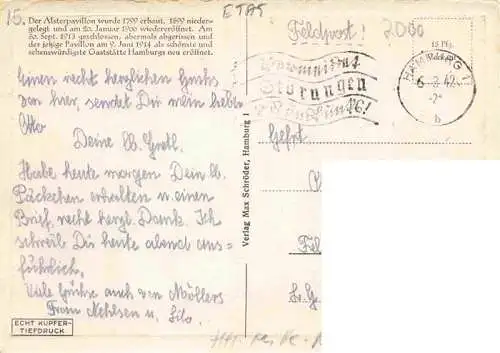 15.
Der Alsterpavillon wurde 1799 erbaut, 1899 nieder-
gelegt und am 20. Januar 1900 wiedereröffnet. Am
30. Sept. 1913 geschlossen, abermals abgerissen und
der jetzige Pavillon am 9. Juni 1914 als schönste und
sehenswürdigste Gaststätte Hamburgs neu eröffnet.
ETAS
Feldpost!
2000
Störungen
HAMBURG 11
6. 2. 42
b
Einen recht herzlichen Gruß
von hier, sendet Dir mein lieber
Otto
Deine lb. Gretl.
Habe heute morgen Dein lb.
Päckchen erhalten u. einen
Brief, recht herzl. Dank. Ich
schreib Dir heute abend aus-
führlich.
Viele Grüße auch von Möllers
From Nehlsen u. Lilo.
Verlag Max Schröder, Hamburg 1
Gefrt.
ECHT KUPFER-
TIEFDRUCK